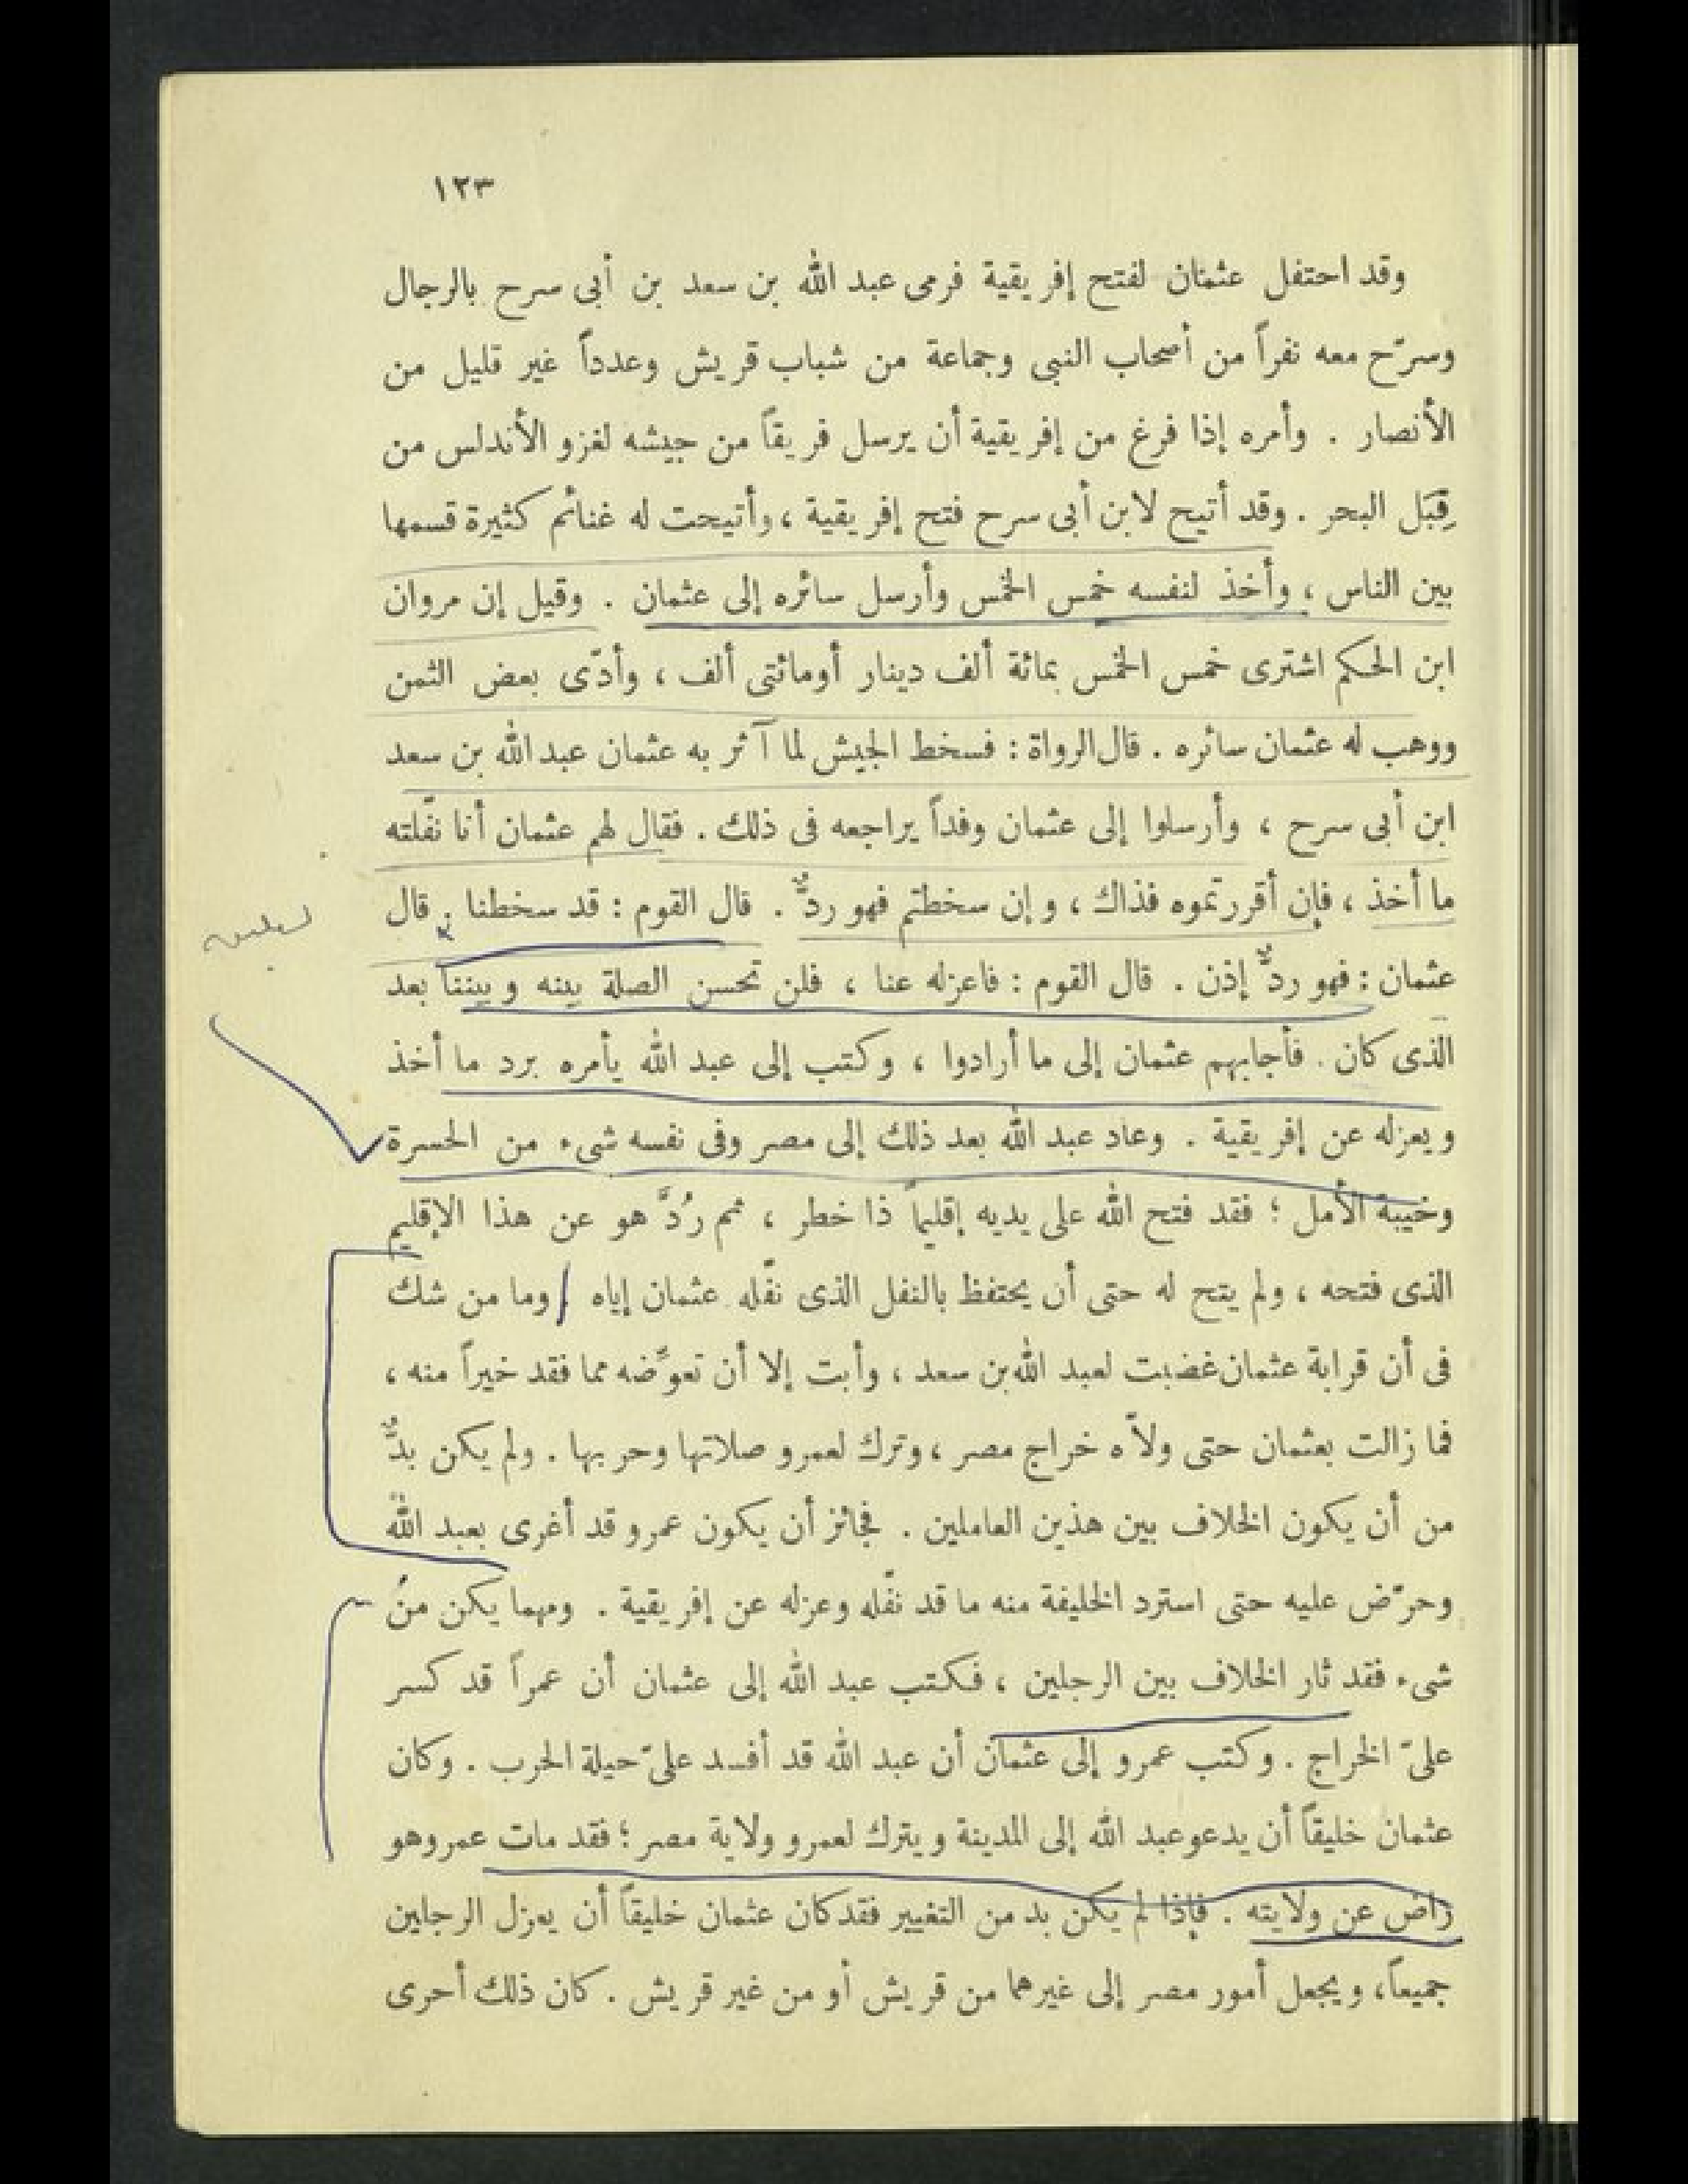 ١٢٣
وقد احتفل عثمان لفتح إفريقية فرمى عبد الله بن سعد بن أبى سرح بالرجال
وسرّح معه نفراً من أصحاب النبى وجماعة من شباب قريش وعدداً غير قليل من
الأنصار . وأمره إذا فرغ من إفريقية أن يرسل فريقاً من جيشه لغزو الأندلس من
قِبَل البحر . وقد أتيح لابن أبى سرح فتح إفريقية ، وأتيحت له غنائم كثيرة قسمها
بين الناس ، وأخذ لنفسه خمس الخمس وأرسل سائره إلى عثمان . وقيل إن مروان
ابن الحكم اشترى خمس الخمس بمائة ألف دينار أومائتى ألف ، وأدّى بعض الثمن
ووهب له عثمان سائره . قال الرواة : فسخط الجيش لما آثر به عثمان عبد الله بن سعد
ابن أبى سرح ، وأرسلوا إلى عثمان وفداً يراجعه فى ذلك . فقال لهم عثمان أنا نفّلته
ما أخذ ، فإن أقررتموه فذاك ، وإن سخطتم فهو ردٌّ . قال القوم : قد سخطنا . قال
عثمان : فهو ردٌّ إذن . قال القوم : فاعزله عنا ، فلن تحسن الصلة بينه وبيننا بعد
الذى كان . فأجابهم عثمان إلى ما أرادوا ، وكتب إلى عبد الله يأمره برد ما أخذ
ويعزله عن إفريقية . وعاد عبد الله بعد ذلك إلى مصر وفى نفسه شىء من الحسرة
وخيبة الأمل ؛ فقد فتح الله على يديه إقليماً ذا خطر ، ثم رُدَّ هو عن هذا الإقليم
الذى فتحه ، ولم يتح له حتى أن يحتفظ بالنفل الذى نفّله عثمان إياه . وما من شك
فى أن قرابة عثمان غضبت لعبد الله بن سعد ، وأبت إلا أن تعوِّضه مما فقد خيراً منه ،
فما زالت بعثمان حتى ولاّه خراج مصر ، وترك لعمرو صلاتها وحربها . ولم يكن بدٌّ
من أن يكون الخلاف بين هذين العاملين . فجائز أن يكون عمرو قد أغرى بعبد الله
وحرّض عليه حتى استرد الخليفة منه ما قد نفّله وعزله عن إفريقية . ومهما يكن من
شىء فقد ثار الخلاف بين الرجلين ، فكتب عبد الله إلى عثمان أن عمراً قد كسر
علىّ الخراج . وكتب عمرو إلى عثمان أن عبد الله قد أفسد علىّ حيلة الحرب . وكان
عثمان خليقاً أن يدعو عبد الله إلى المدينة ويترك لعمرو ولاية مصر ؛ فقد مات عمر وهو
راض عن ولايته . فإذا لم يكن بد من التغيير فقد كان عثمان خليقاً أن يعزل الرجلين
جميعاً، ويجعل أمور مصر إلى غيرهما من قريش أو من غير قريش . كان ذلك أحرى